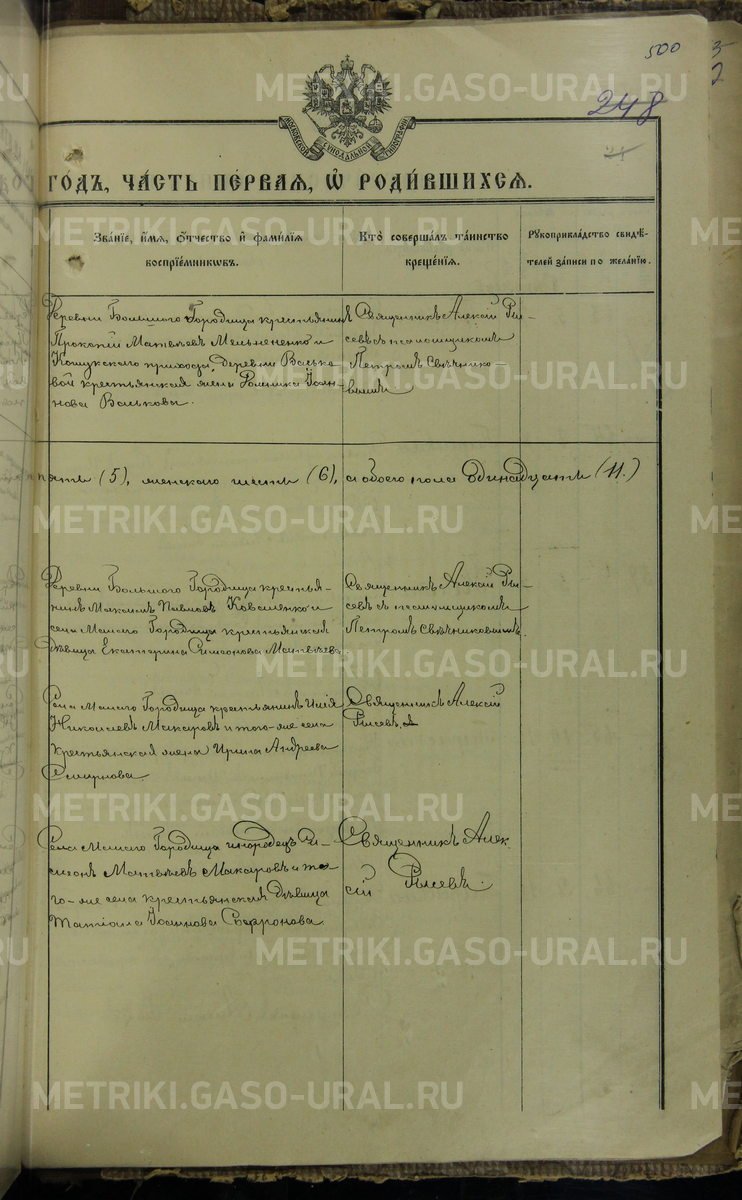 500
248
МОСКОВСКОЙ СѴНОДАЛЬНОЙ ТИПОГРАФІИ
го́дъ, ча́сть пе́рваѧ, ѡ҆ роди́вшихсѧ.
Зва́нїе, и҆́мѧ, ѻ҆́тчество и҆ фами́лїѧ воспрїе́мникѡвъ.
Кто̀ соверша́лъ та́инство креще́нїѧ.
Рꙋкоприкла́дство свидѣ́телей за́писи по жела́нїю.
Деревни Большого Городища крестьянинъ
Прокопій Матвѣевъ Мельнененко и
Кошукскаго прихода, деревни Валько-
вой крестьянская жена Іоан-
нова Валькова.
Священникъ Алексій Ры-
севъ съ псаломщикомъ
Петромъ Свѣчнико-
вымъ
пять (5), женскаго шесть (6), а обоего пола одинадцать (11.)
Деревни Большого Городища крестья-
нинъ Максимъ Павловъ Коваленко и
села Малаго Городища крестьянская
дѣвица Екатерина Симеонова Матвѣева.
Священникъ Алексій Ры-
севъ съ псаломщикомъ
Петромъ Свѣчниковымъ.
Села Малаго Городища крестьянинъ Илія
Николаевъ Макаровъ и того-же села
крестьянская жена Ирина Андреева
Смирнова.
Священникъ Алексій
Рысевъ.
Села Малаго Городища инородецъ Си-
меонъ Матвѣевъ Макаровъ и то-
го-же села крестьянская дѣвица
Татіана Іоаннова Сафронова.
Священникъ Алек
сій Рысевъ.
METRIKI.GASO-URAL.RU